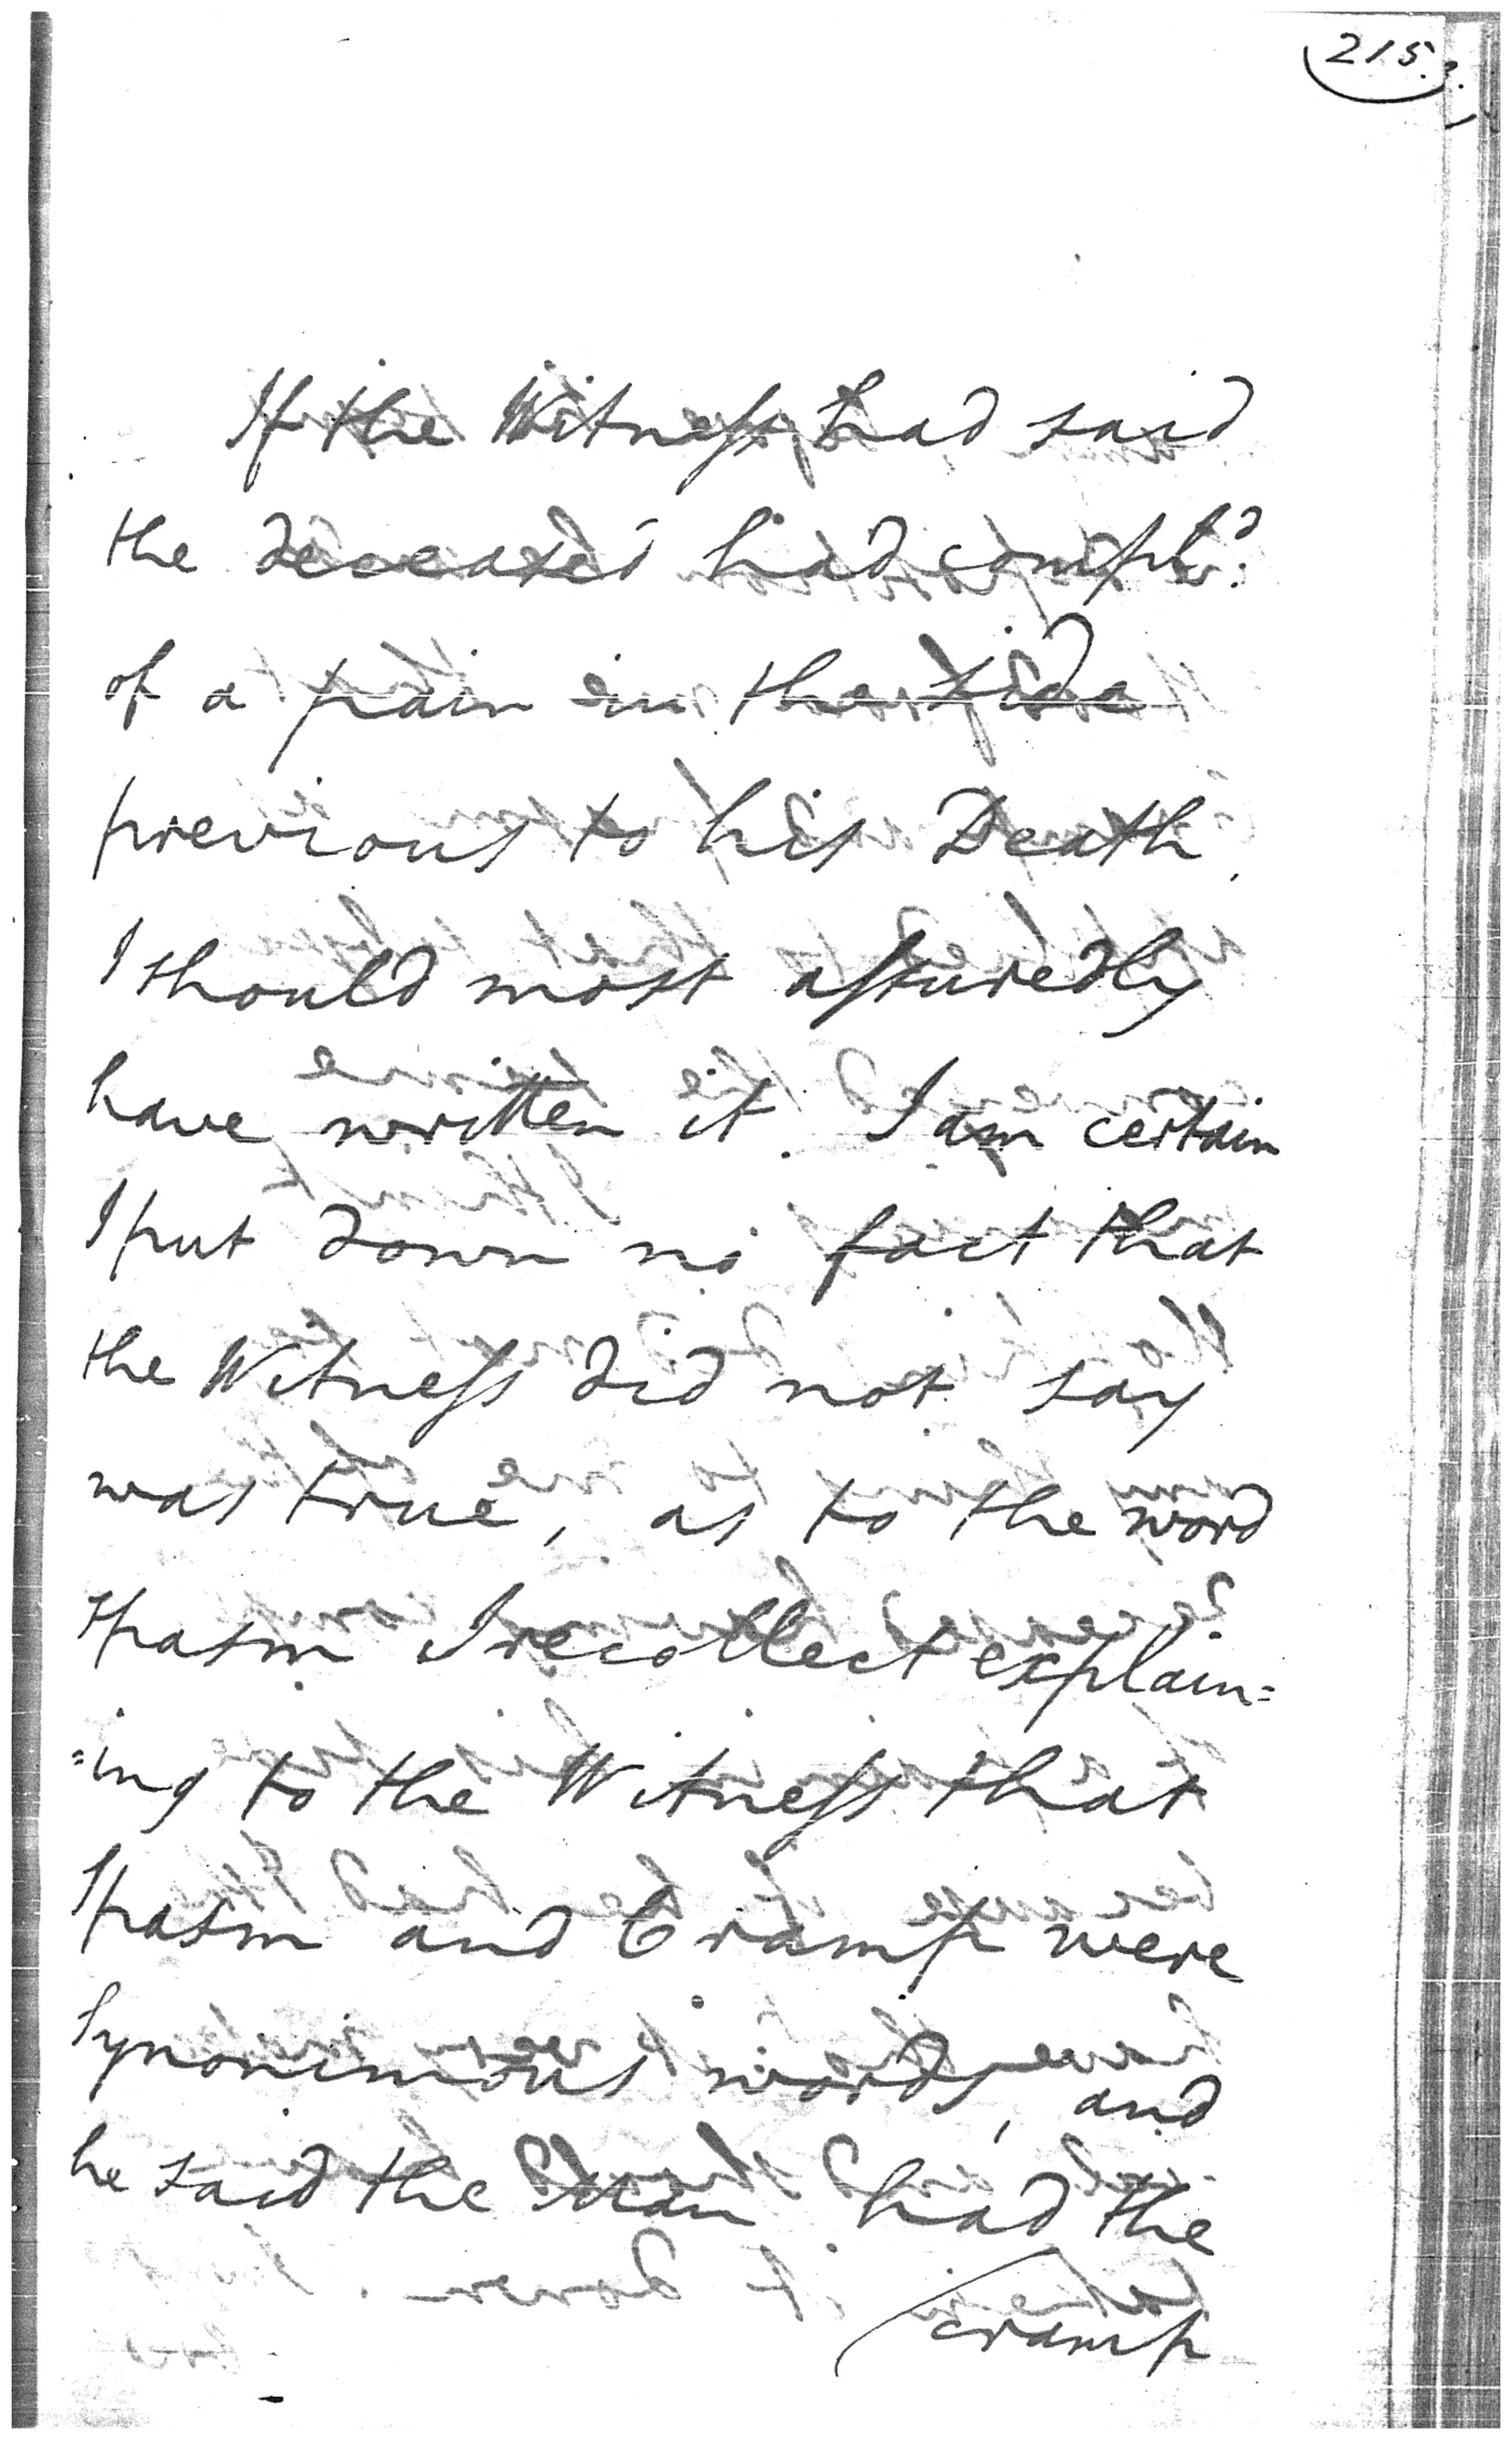 215.
If the Witness had said
the deceased had compl.d
of a pain in the side
previous to his Death,
I should most assuredly
have written it. I am certain
I put down no fact that
the Witness did not say
was true, as to the word
spasm I recollect explain=
=ing to the Witness that
Spasm and Cramp were
Synonimous words, and
he said the Man had the
cramp